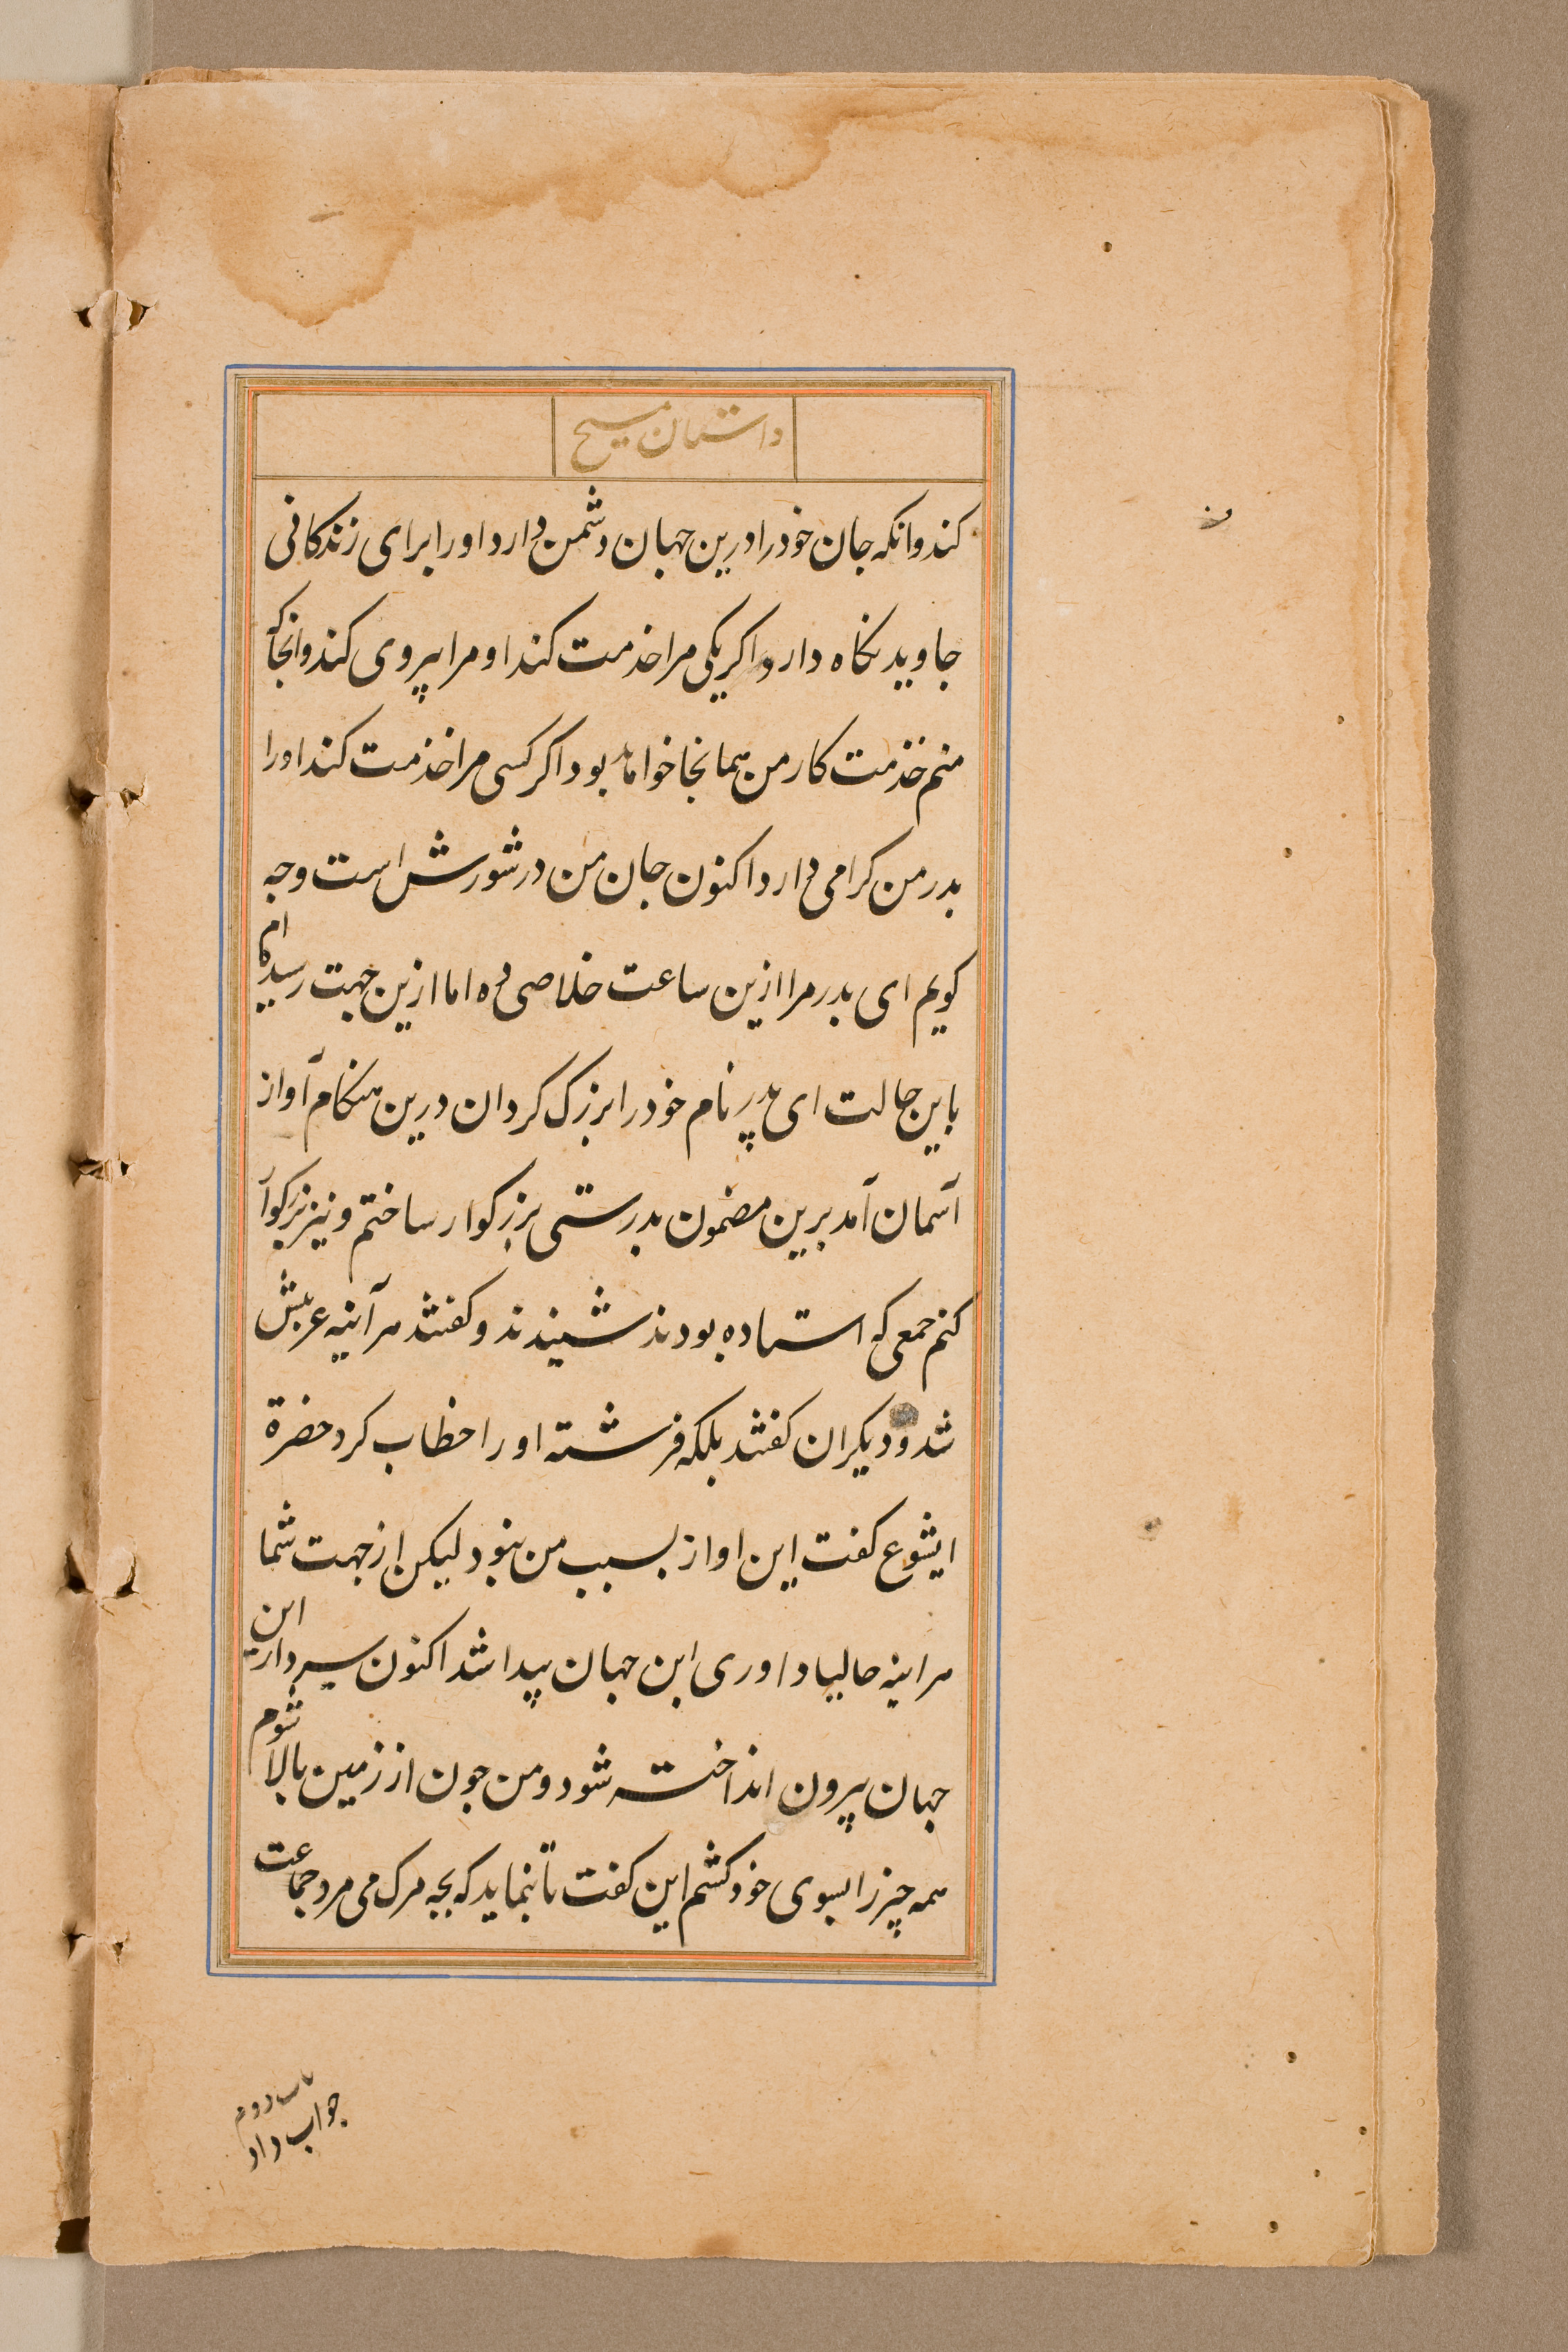 داستان مسیح
کند وانکه جان خود را درین جهان دشمن دارد او را برای زندکانی
جاوید نکاه دارد و اکر یکی مرا خدمت کند او مرا پیروی کند و انجا که
منم خذمت کار من همانجا خواهد بود اکر کسی مرا خذمت کند او را
بدر من کرامی دارد اکنون جان من در شورش است و چه
کویم ای بدر مرا ازین ساعت خلاصی ده اما ازین جهت رسیده ام
باین حالت ای پدر نام خود را بزرک کردان درین هنکام آواز
آسمان آمد برین مضمون بدرستی بزرکوار ساختم و نیز بزرکوار
کنم جمعی که استاده بودند شنیدند و کفتند هر آینه غرش
شد و دیکران کفتند بلکه فرشته او را خطاب کرد حضرة
ایشوع کفت این اواز بسبب من نبود لیکن از جهت شما
هر اینه حالیا داوری این جهان پیدا شد اکنون سردار این
جهان بیرون انداخته شود و من چون از زمین بالا شوم
همه چیز را بسوی خود کشم این کفت تا بنماید که بچه مرک می مرد جماعت
جواب داد